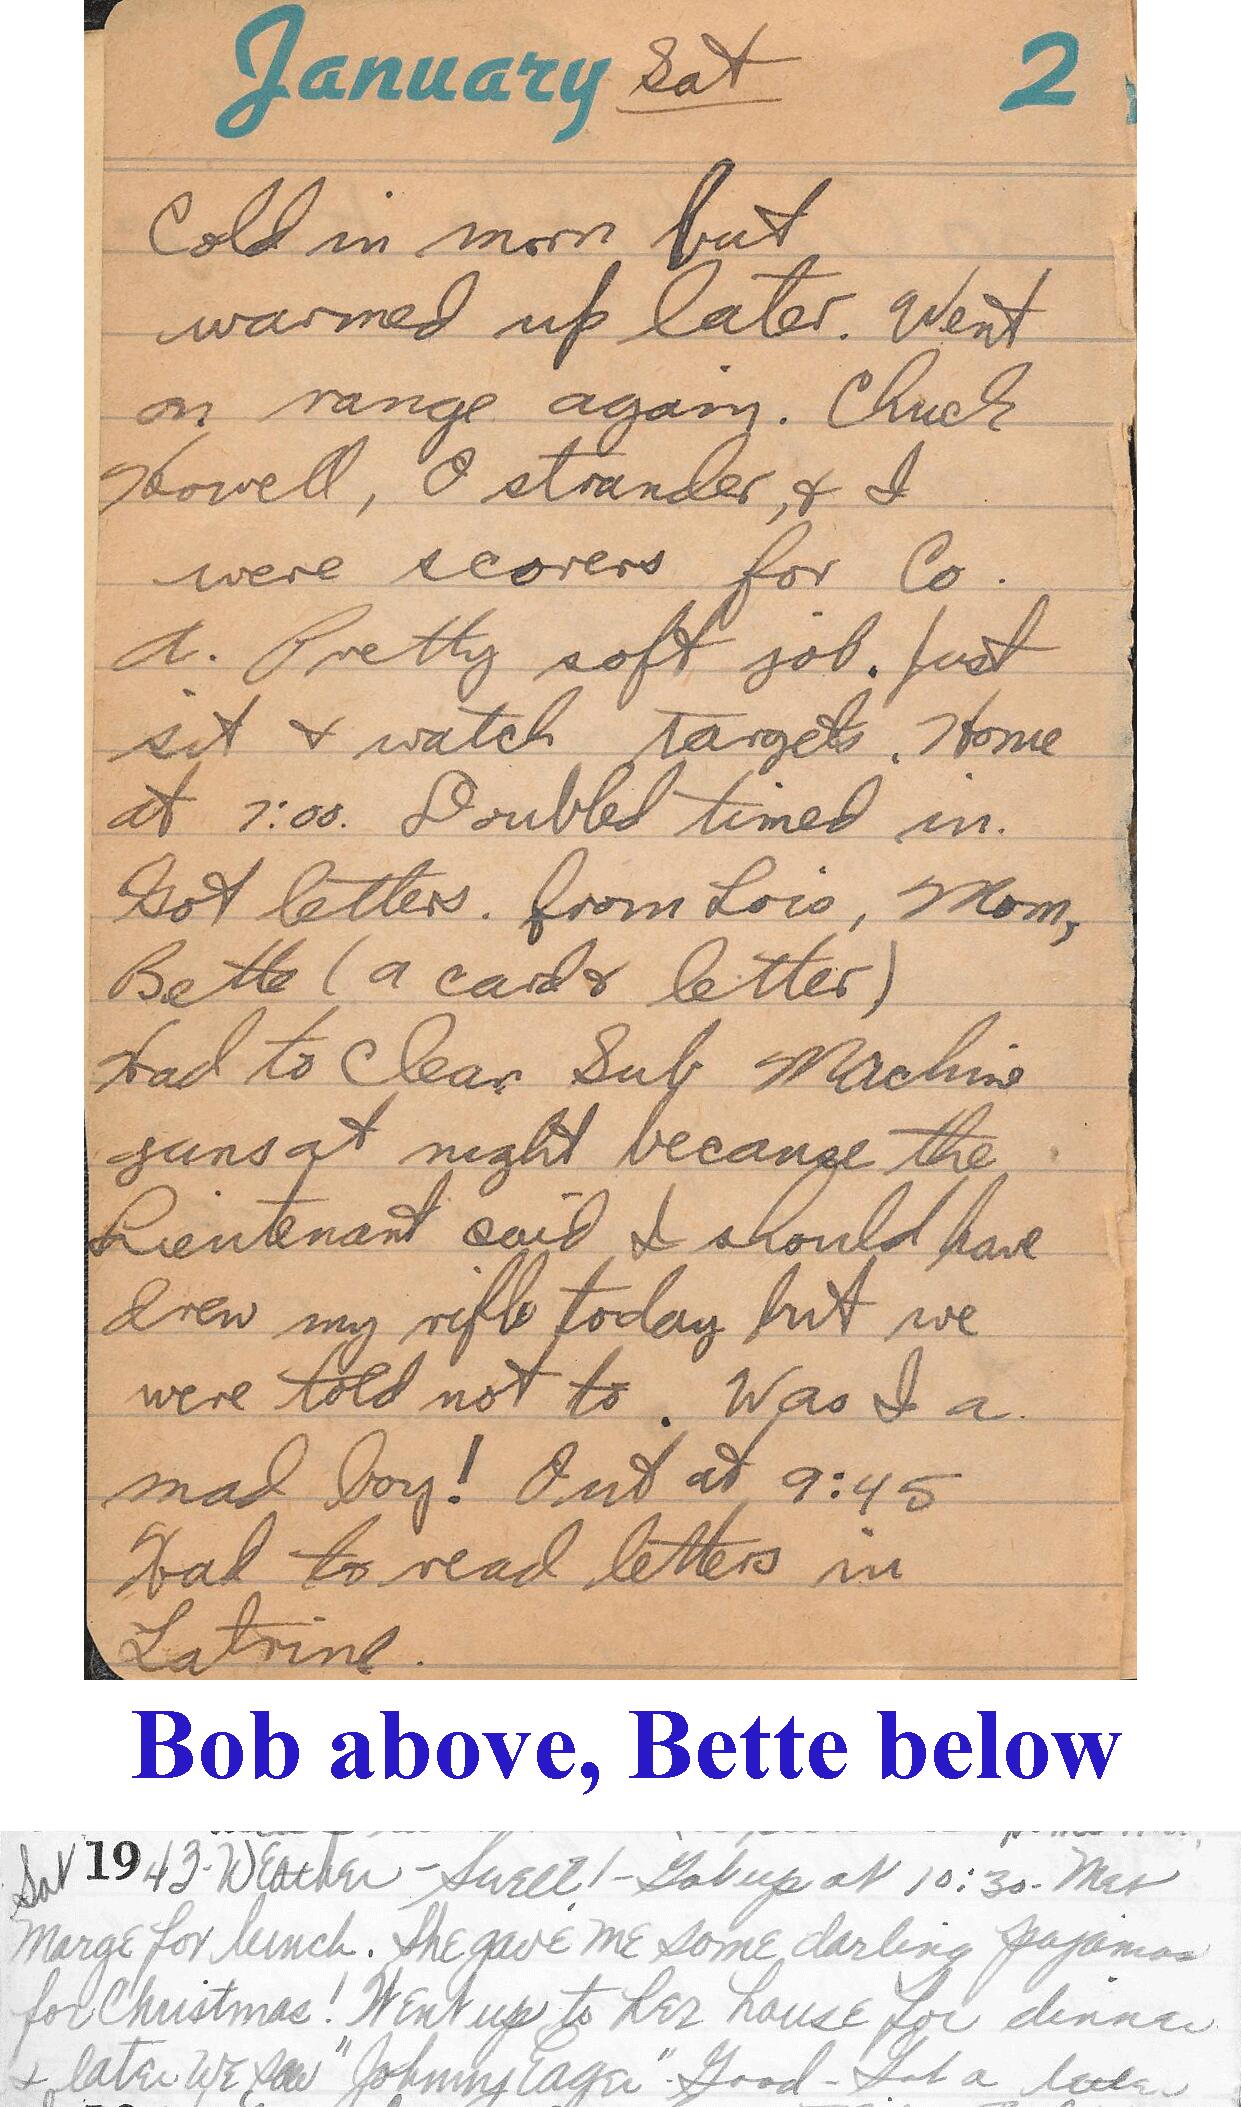 January Sat 2
Cold in morn but
warmed up later. Went
on range again. Chuck
Howell, Ostrander, & I
were scorers for Co.
A. Pretty soft job. Just
sit & watch targets. Home
at 7:00. Doubled timed in.
Got letters. from Lois, Mom,
Bette (a card & letter)
Had to clean Sub Machine
guns at night because the
Lieutenant said I should have
drew my rifle today but we
were told not to. Was I a
mad boy! Out at 9:45
Had to read letters in
Latrine.
Bob above, Bette below
Sat 1943 - Weather - Swell! - Got up at 10:30. Met
Marge for lunch. She gave me some darling pajamas
for Christmas! Went up to her house for dinner
& later we saw "Johnny Eager" - Good - Got a letter